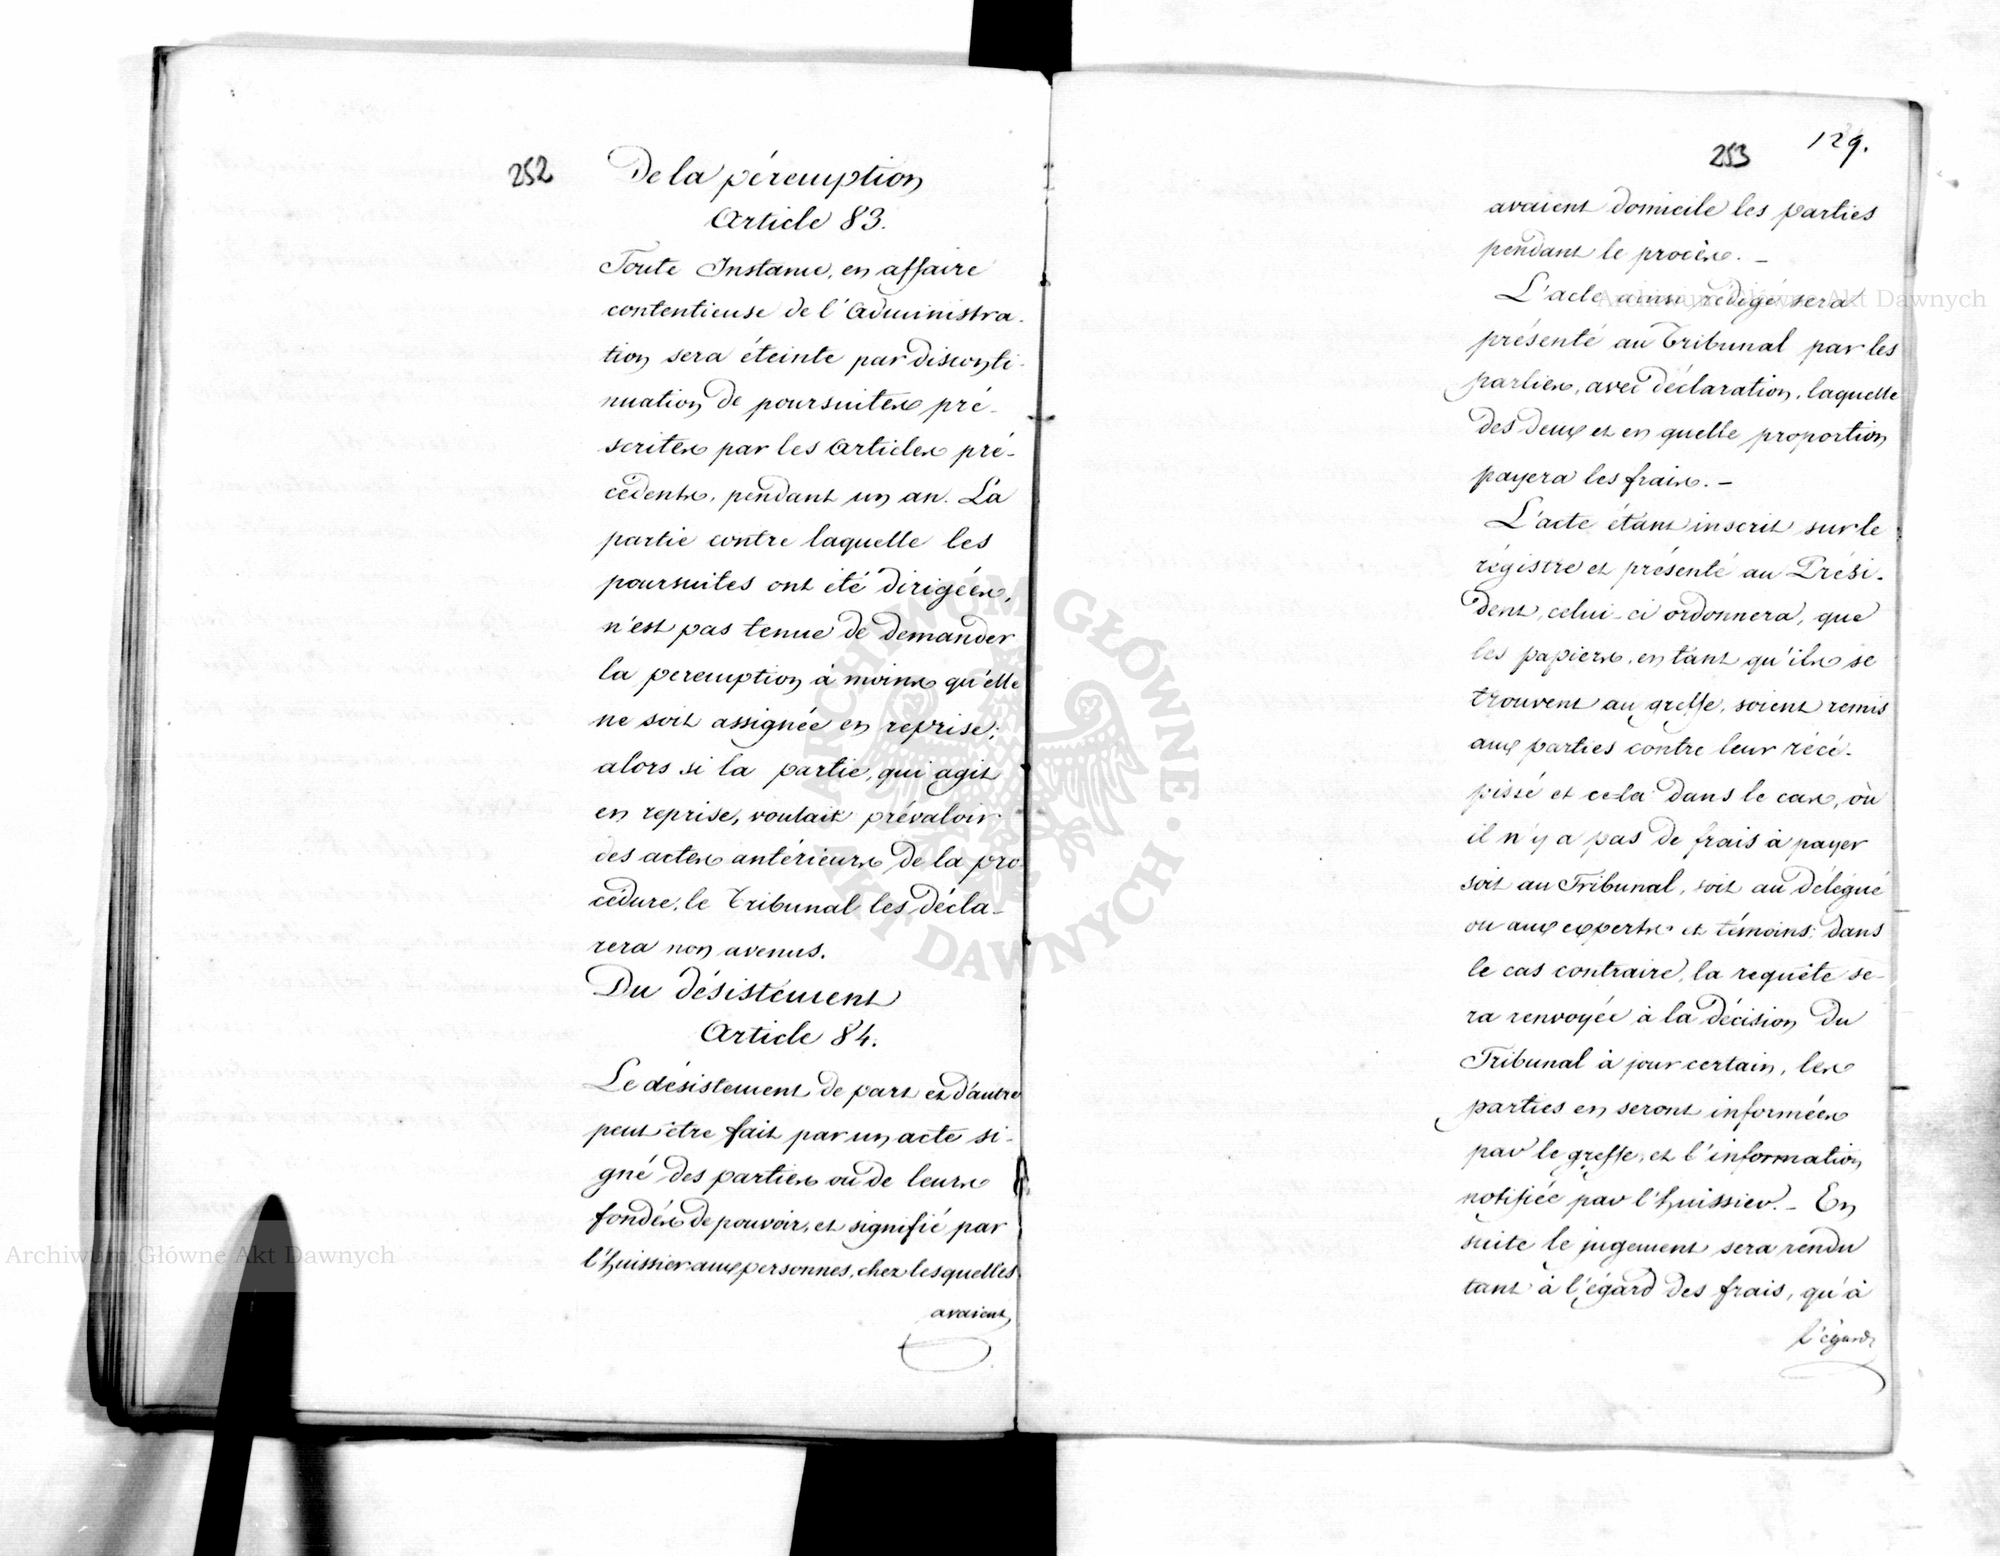 252
De la péremption
Article 83.
Toute Instance, en affaire
contentieuse de l'Administra-
tion sera éteinte par disconti-
nuation de poursuites pré-
scrites par les Articles pré-
cédents, pendant un an. La
partie contre laquelle les
poursuites ont été dirigées,
n'est pas tenue de demander
la peremption à moins qu'elle
ne soit assignée en reprise;
alors si la partie, qui agit
en reprise, voulait prévaloir
des actes antérieurs de la pro
cédure, le Tribunal les décla-
rera non avenus.
Du désistement
Article 84.
Le désistement de part et d'autre
peut être fait par un acte si-
gné des parties ou de leurs
fondés de pouvoir, et signifié par
l'huissier aux personnes, chez lesquelles
avaient
253 129.
avaient domicile les parties
pendant le procès. -
L'acte ainsi rédigé sera
présenté au Tribunal par les
parties, avec déclaration, laquelle
des deux et en quelle proportion
payera les frais. -
L'acte étant inscrit sur le
régistre et présenté au Prési-
dent, celui-ci ordonnera, que
les papiers, en tant qu'ils se
trouvent au greffe, soient remis
aux parties contre leur récé-
pissé et cela dans le cas, où
il n'y a pas de frais à payer
soit au Tribunal, soit au délégué
ou aux experts et témoins; dans
le cas contraire, la requête se-
ra renvoyée à la décision du
Tribunal à jour certain, les
parties en seront informées
par le greffe, et l'information
notifiée par l'huissier. - En
suite le jugement sera rendu
tant à l'égard des frais, qu'à
l'égard
Archiwum Główne Akt Dawnych
Archiwum Główne Akt Dawnych
ARCHIWUM GŁÓWNE · AKT DAWNYCH ·